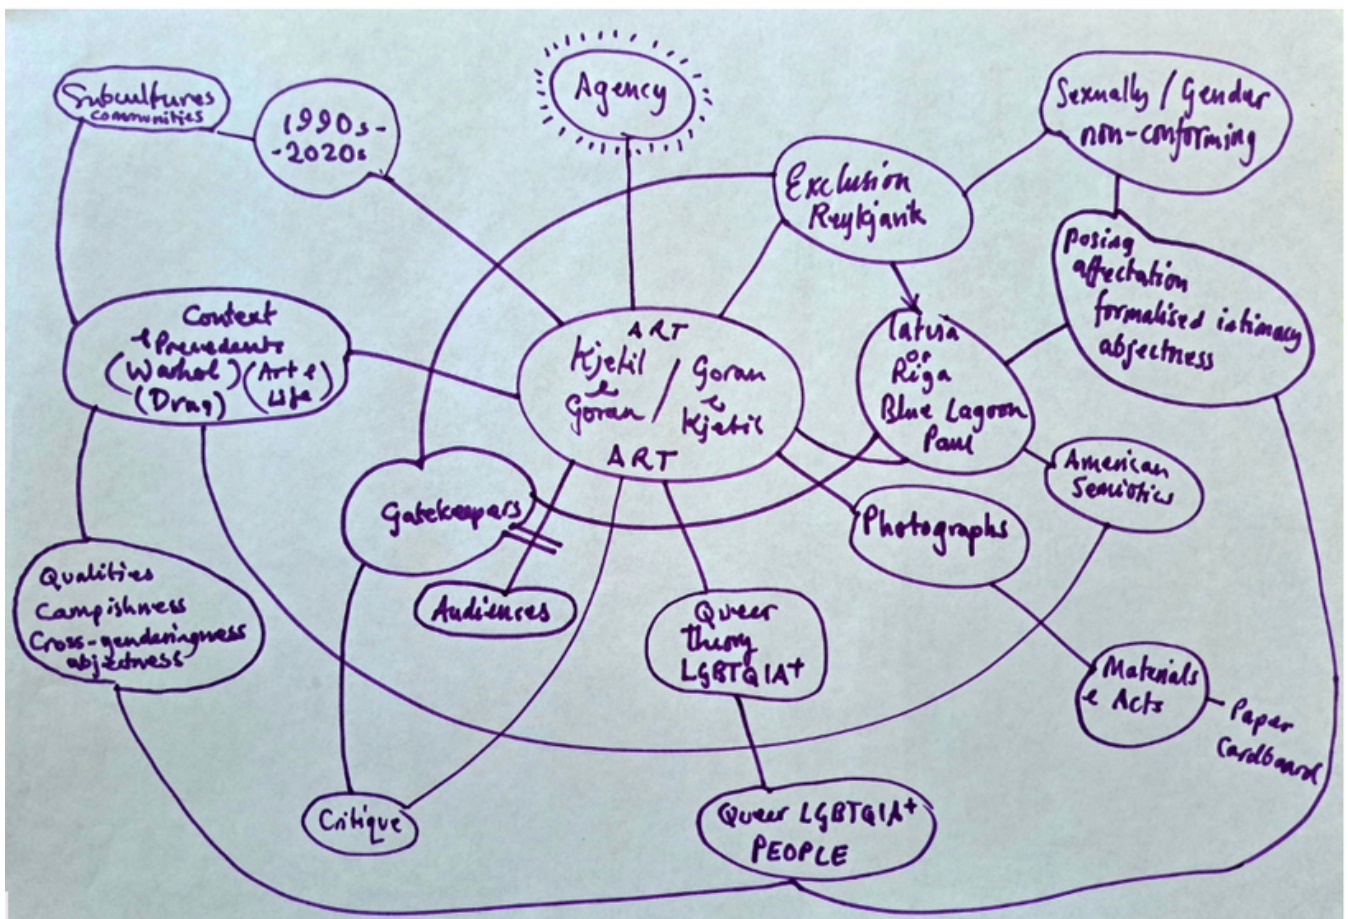 Subcultures
communities
1990s-
-2020s
Agency
Sexually / Gender
non-conforming
Exclusion
Reykjavik
posing
affectation
formalised intimacy
abjectness
Context
& Precedents
(Warhol) (Art &
Life)
(Drag)
ART
Kjetil
&
Goran
/
Goran
&
Kjetil
ART
Latvia
or
Riga
Blue Lagoon
American
Semiotics
Gatekeepers
Photographs
Qualities
Campishness
Cross-genderingness
abjectness
Audiences
Queer
theory
LGBTQIA+
Materials
& Acts
Paper
Cardboard
Critique
Queer LGBTQIA+
PEOPLE